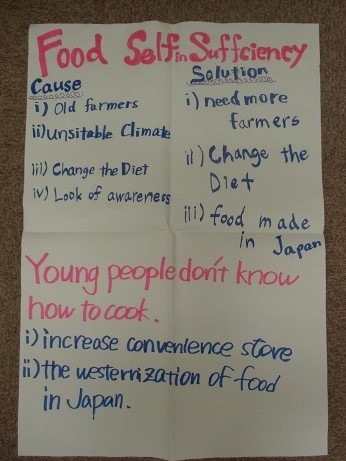 Food Self in Suffciency
Cause
i) Old farmers
ii) unsitable Climate
iii) Change the Diet
iv) Look of awareness
Solution
i) need more
farmers
ii) Change the
Diet
iii) food made
in Japan
Young people don't know
how to cook.
i) increase convenience store
ii) the westernization of food
in Japan.